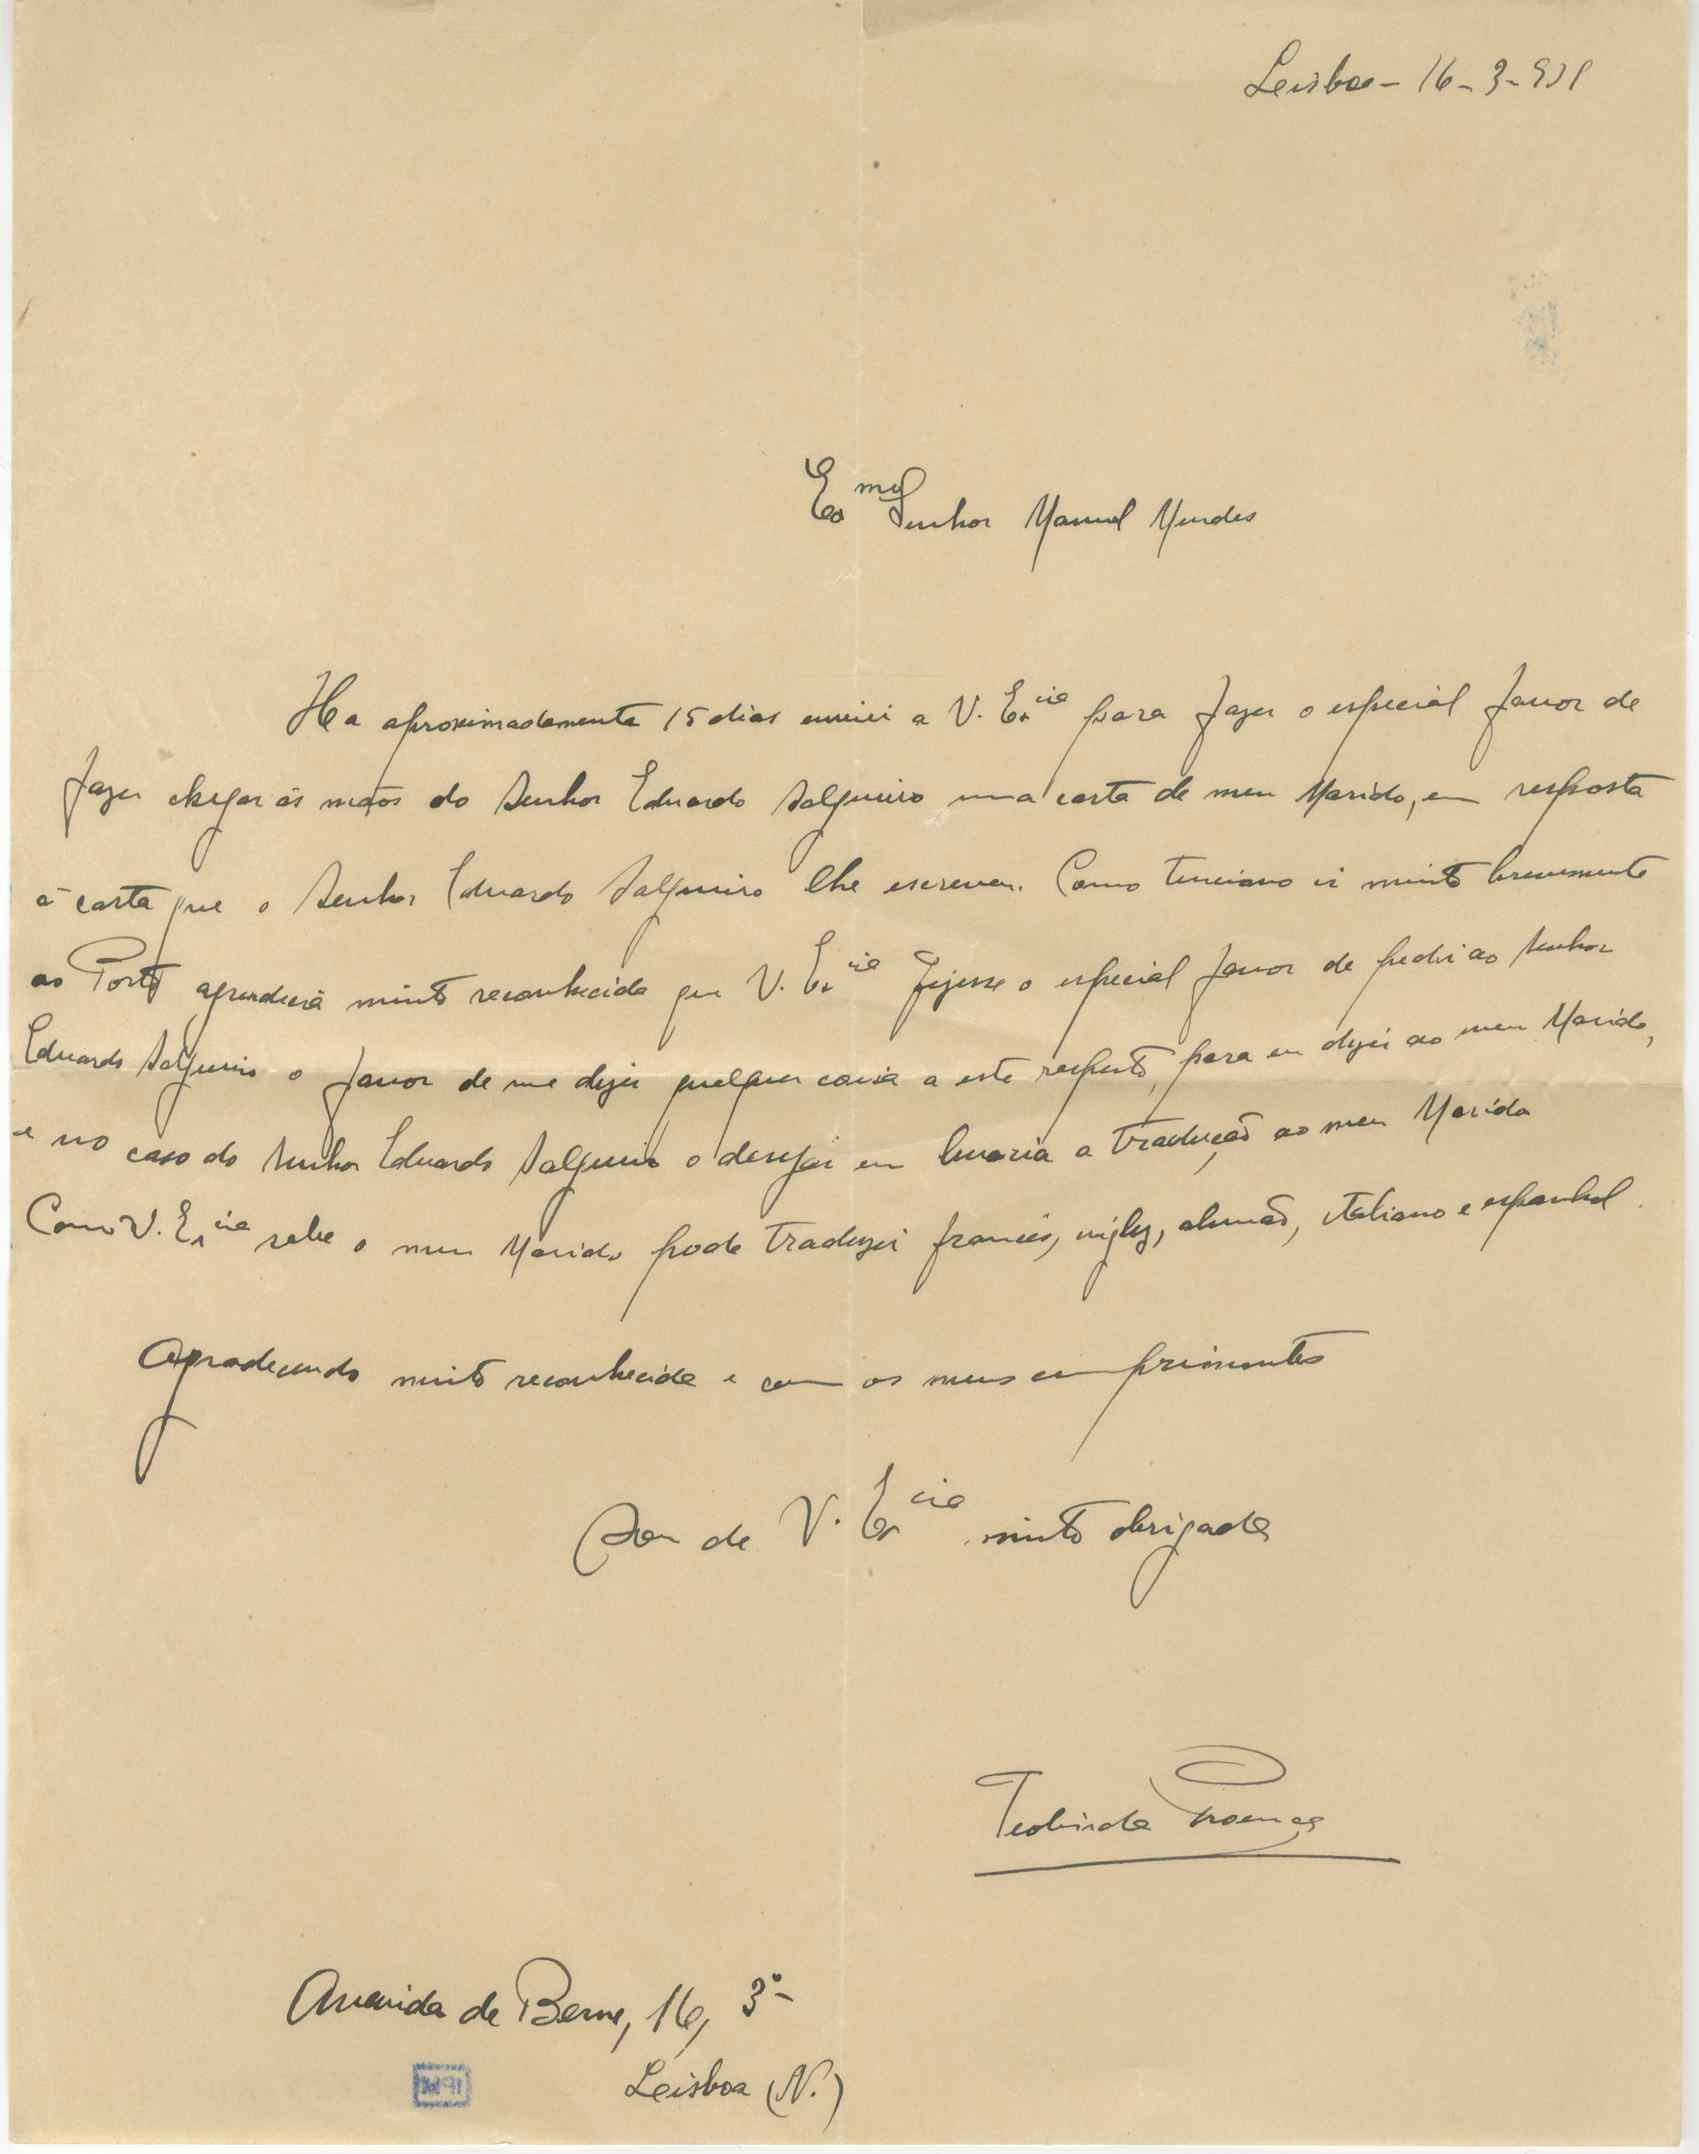 Lisboa - 16 - 3 - 939
Ex.mo Senhor Manuel Mendes
Ha aproximadamente 15 dias enviei a V. Ex.cia para fazer o especial favor de
fazer chegar ás mãos do Senhor Eduardo Salgueiro uma carta de meu Marido, em resposta
á carta que o Senhor Eduardo Salgueiro lhe escreveu. Como tenciono ir muito brevemente
ao Porto agradecia muito reconhecida que V. Ex.cia fizesse o especial favor de pedir ao Senhor
Eduardo Salgueiro o favor de me dizer qualquer coisa a este respeito, para eu dizer ao meu Marido,
e no caso do Senhor Eduardo Salgueiro o desejar eu levaria a tradução ao meu Marido
Como V. Ex.cia sabe o meu Marido pode traduzir francês, inglez, alemão, italiano e espanhol.
Agradecendo muito reconhecida e com os meus cumprimentos
Sou de V. Ex.cia muito obrigada
Teolinda Proença
Avenida de Berne, 16, 3º
Lisboa (N.)